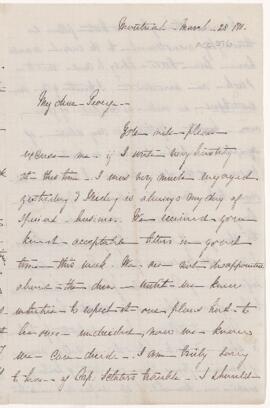 Montreal - March - 28
My dear George -
You will please
excuse me if I write very hastily
at this time - I was very much engaged
yesterday & Friday is always my day of
special business. We received your
kind & acceptable letters in good
time - this week. We are not disappointed
about the - until we knew
what to expect of our plans had to
be undecided, now we know
we can decide. I am truly sorry
to hear of Cap. trouble. I should